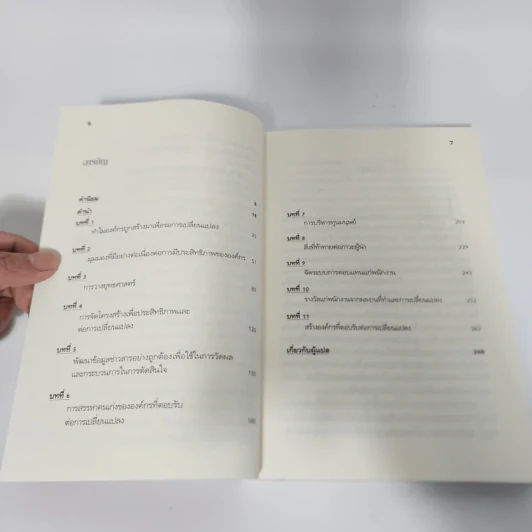 6
สารบัญ
คำนิยม
คำนำ
บทที่ 1
ทำไมองค์กรถูกสร้างมาเพื่อรอการเปลี่ยนแปลง
บทที่ 2
มุมมองที่มีอย่างต่อเนื่องต่อการมีประสิทธิภาพขององค์กร
บทที่ 3
การวางยุทธศาสตร์
บทที่ 4
การจัดโครงสร้างเพื่อประสิทธิภาพและ
ต่อการเปลี่ยนแปลง
บทที่ 5
พัฒนาข้อมูลข่าวสารอย่างถูกต้องเพื่อใช้ในการวัดผล
และกระบวนการในการตัดสินใจ
บทที่ 6
การสรรหาคนเก่งขององค์กรที่ตอบรับ
ต่อการเปลี่ยนแปลง
7
บทที่ 7
การบริหารทุนมนุษย์
บทที่ 8
สิ่งที่ท้าทายต่อภาวะผู้นำ
บทที่ 9
จัดระบบการตอบแทนแก่พนักงาน
บทที่ 10
รางวัลแก่พนักงานจากผลงานที่ทำและการเปลี่ยนแปลง
บทที่ 11
สร้างองค์กรที่ตอบรับต่อการเปลี่ยนแปลง
เกี่ยวกับผู้แปล